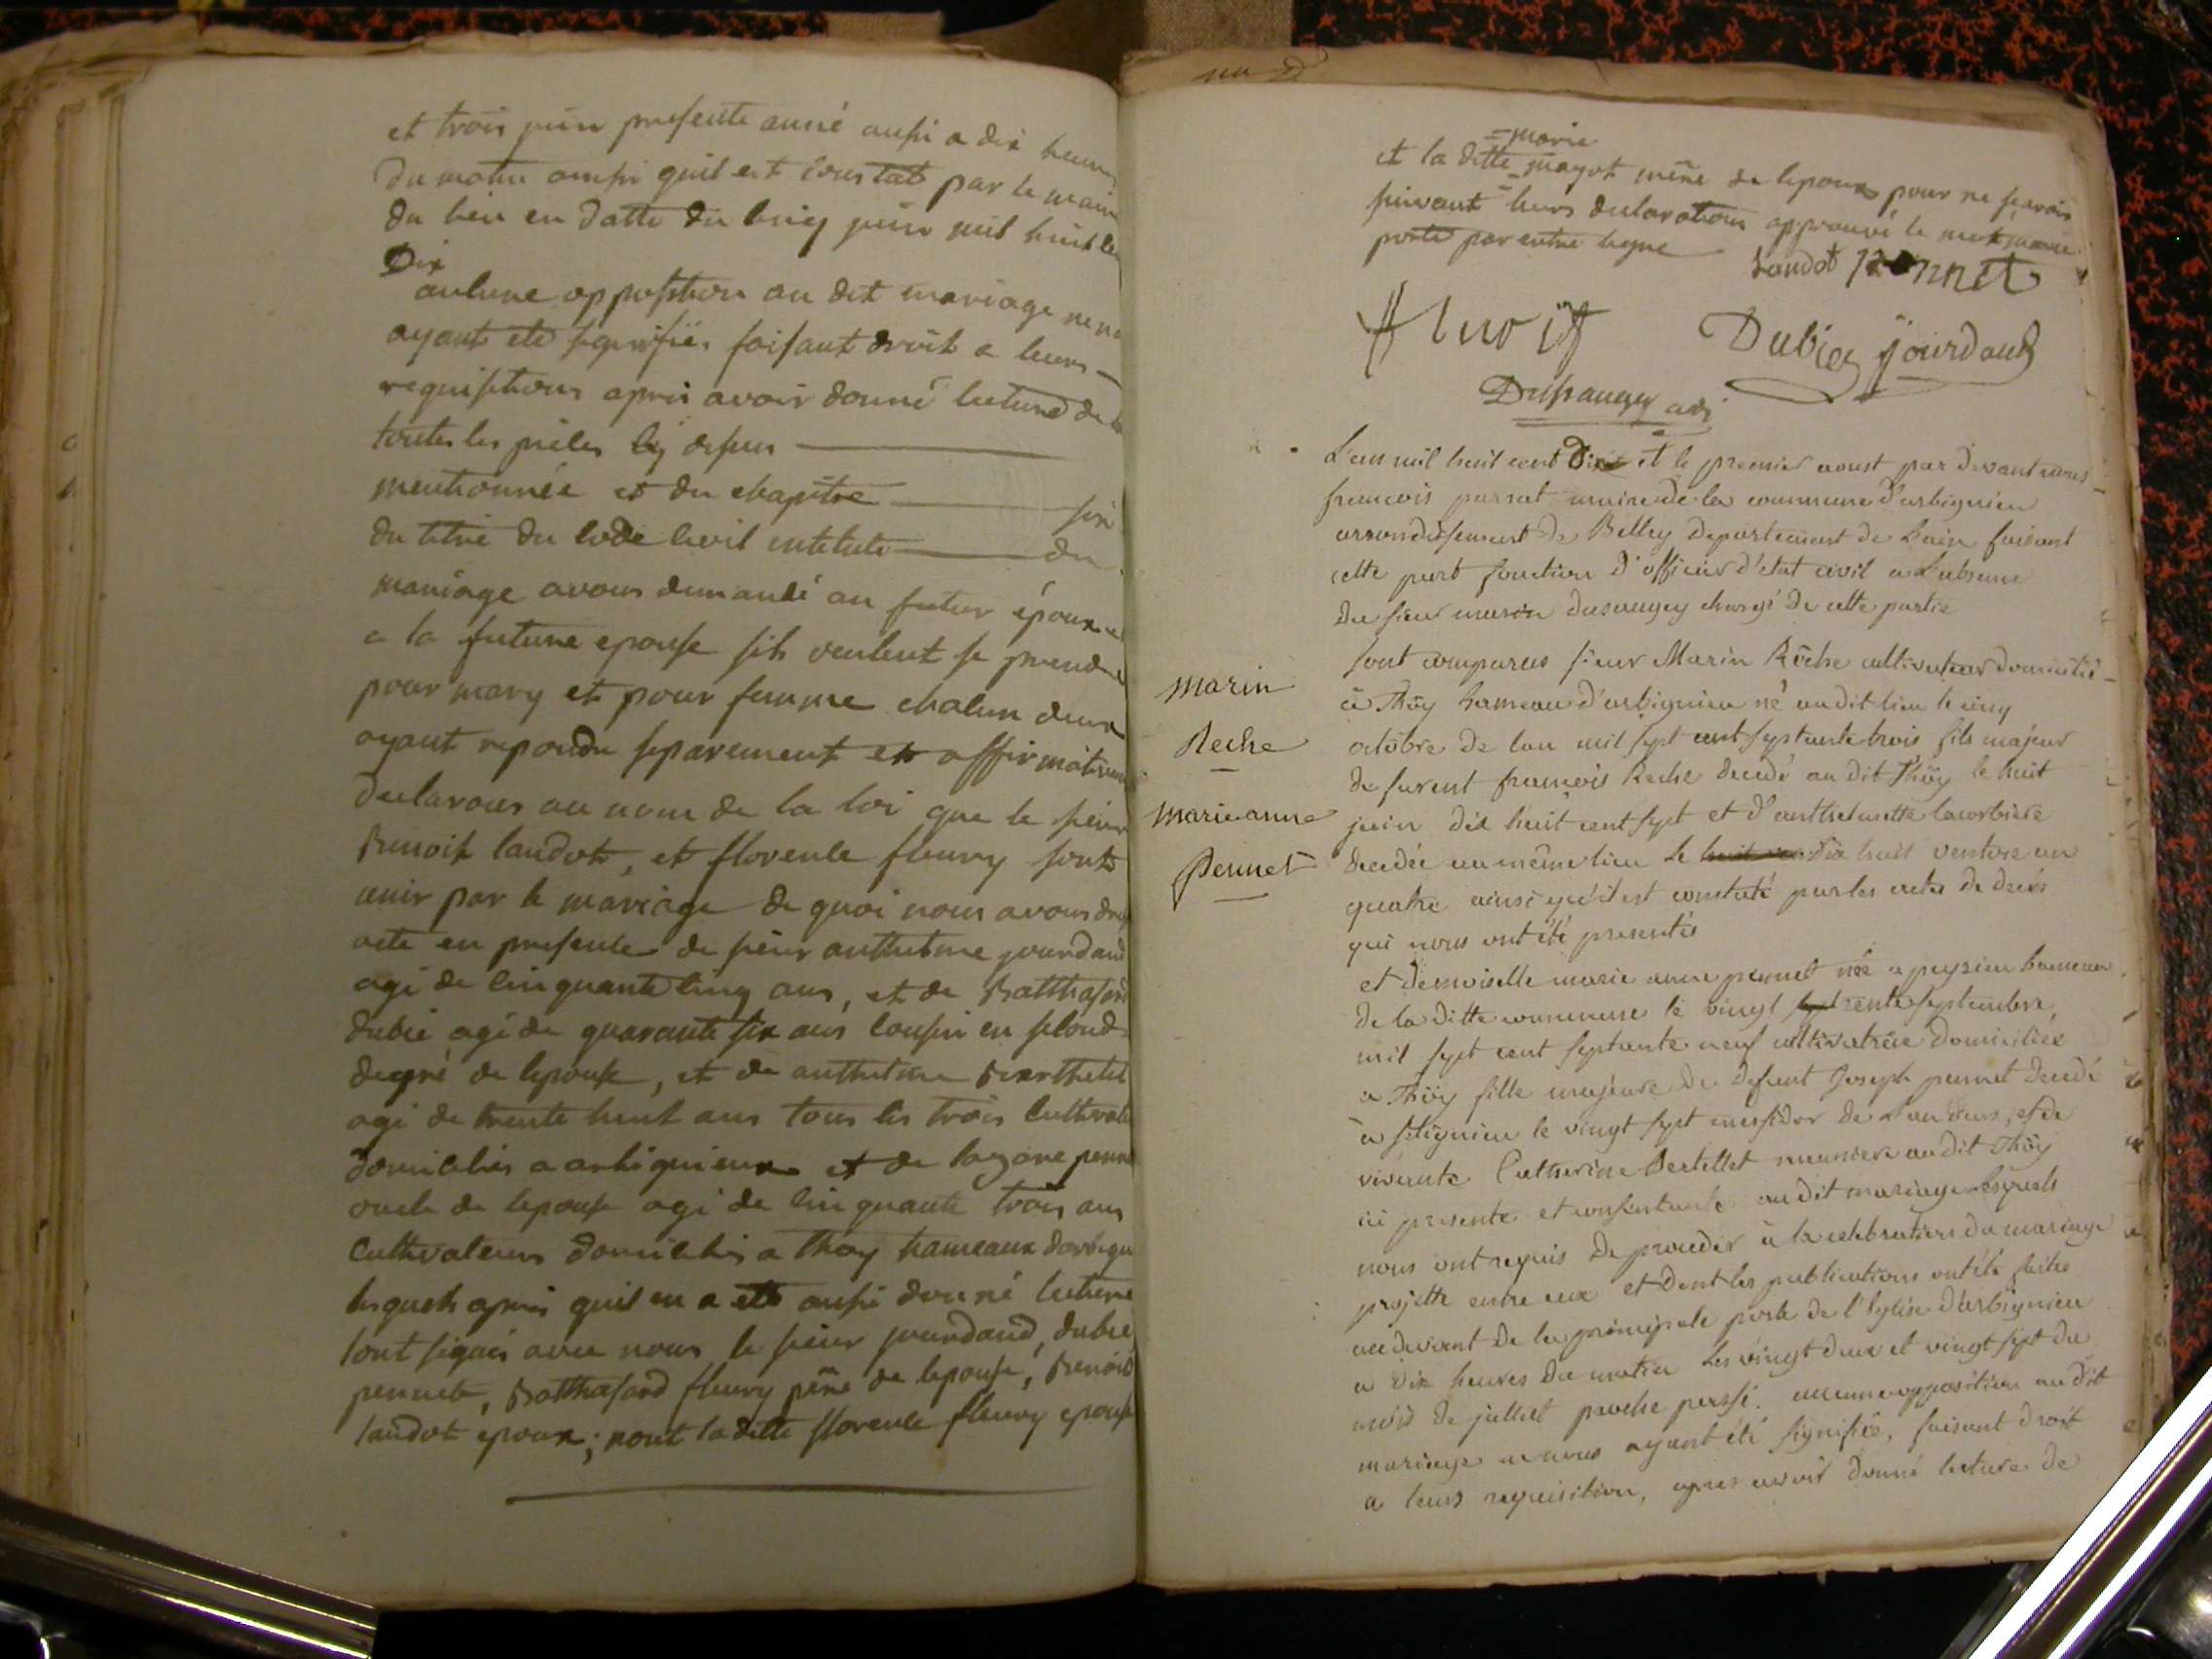 et trois juin presente anné aussi a dix heures
du matin ainsi quil est constat par le maire
du lieu en datte du cinq juin mil huit cen
Dix
aucune opposition au dit mariage ne n
ayant eté signifiés faisant droit a leurs
requisitions apres avoir donné lecture de
toutes les pieces cy desus
mentionnée et du chapitre six
du titre du code civil intitulé du
mariage avons demandé au futur époux
a la future epouse sils veulent se prendre
pour mary et pour femme chacun deux
ayant repondu separement et affirmativem
declarons au nom de la loi que le sieur
Benoit landot, et florence fleury sont
unis par le mariage de quoi nous avons dre
acte en presence de sieur anthelme jourdand
agé de cinquante cinq ans, et de Balthasard
dubié agé de quarante six ans cousin en second
degré de lepouse, et de anthelme Berthelet
agé de trente huit ans tous les trois cultivat
domiciliés a arbignieux et de lazare penn
oncle de lepouse agé de cinquante trois ans
cultivateurs domiciliés a thoy hameaux darbign
lesquels apres quil en a eté aussi donné lecture
lont signés avec nous le sieur jourdand, dubie
pennet, Balthasard fleury père de lepouse, Benoit
landot epoux; nont laditte florence fleury epouse
marie
et la ditte mayot mere de lepoux pour ne scavoir
suivant leurs declarations approuvé le mot marie
porté par entre ligne
landot pennet
Dubier jourdand
Dusaugey adj
L'an mil huit cent Dix et le premier aoust par devant nous
francois parrat maire de la commune d'arbignieu
arrondissement de Belley Departement de L'ain faisant
cette part fonction d'officier d'etat civil a L'absence
du sieur marin dusaugey chargé de cette partie
Marin
Reche
marieanne
Pennet
sont comparus sieur Marin Rêche cultivateur domicilié
à Thöy hameau d'arbignieu né audit lieu le cinq
octobre de lan mil sept cent septante trois fils majeur
de furent francois Reche decedé au dit Thöy le huit
juin dix huit cent sept et d'anthelmette lacorbiere
decedée au même lieu le dix huit ventose an
quatre ainsi qu'il est constaté par les actes de deces
qui nous ont été presentés
et Demoiselle marie anne pennet née a peyzieu hameau
de la ditte commune le vingt septembre
mil sept cent septante neuf cultivatrice domiciliée
a Thöy fille majeure de defunt Joseph pennet decedé
à le vingt sept messidor de L'an onze, et de
vivante Catherine Bertellet meuniere audit Thöy
ici presente et consentante audit mariage lesquels
nous ont requis de proceder à la celebration du mariage
projetté entre eux et dont les publications ont été faites
au devant de la principale porte de l'Eglise d'arbignieu
a dix heures du matin les vingt deux et vingt sept du
mois de juillet proche passé. aucune opposition au dit
mariage a nous ayant été signifiée, faisant droit
a leurs requisition, apres avoir donné lecture de